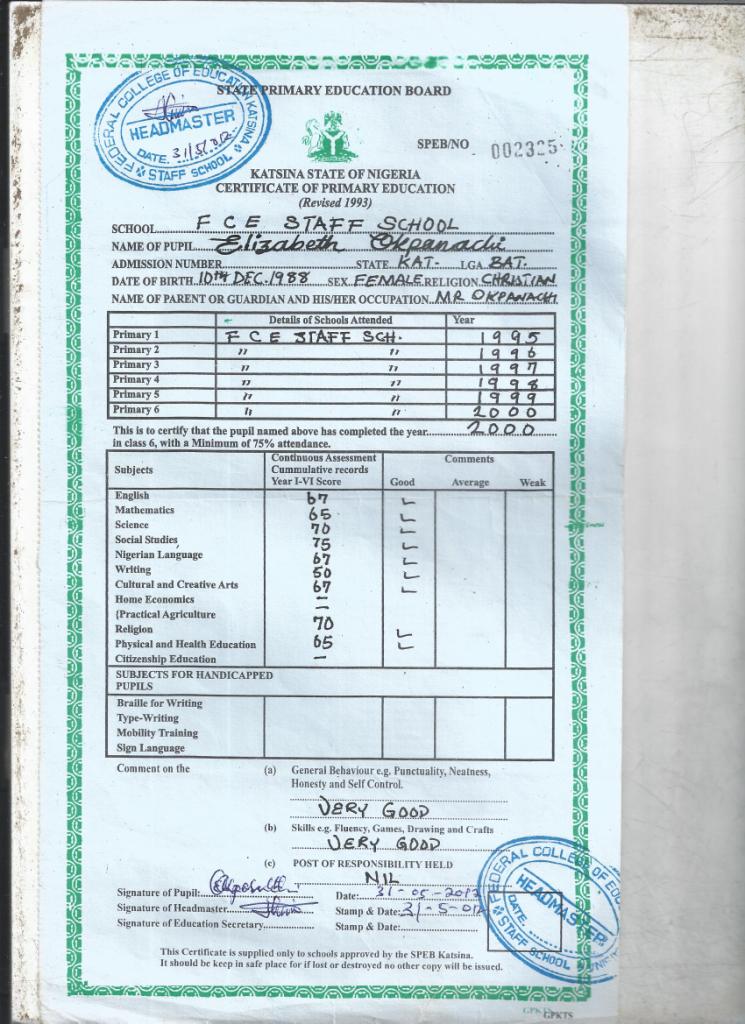 STATE PRIMARY EDUCATION BOARD
FEDERAL COLLEGE OF EDUCATION KATSINA
HEADMASTER
DATE. 31/5/012
STAFF SCHOOL
SPEB/NO 002325
KATSINA STATE OF NIGERIA
CERTIFICATE OF PRIMARY EDUCATION
(Revised 1993)
SCHOOL F C E STAFF SCHOOL
NAME OF PUPIL Elizabeth Okpanachi
ADMISSION NUMBER STATE KAT- LGA BAT-
DATE OF BIRTH 10TH DEC. 1988 SEX FEMALE RELIGION CHRISTIAN
NAME OF PARENT OR GUARDIAN AND HIS/HER OCCUPATION MR OKPANACHI
Details of Schools Attended Year
Primary 1 F C E STAFF SCH. 1995
Primary 2 " " 1996
Primary 3 " " 1997
Primary 4 " " 1998
Primary 5 " " 1999
Primary 6 " " 2000
This is to certify that the pupil named above has completed the year 2000
in class 6, with a Minimum of 75% attendance.
Subjects Continuous Assessment Cummulative records Year I-VI Score Comments
Good Average Weak
English 67
Mathematics 65
Science 70
Social Studies 75
Nigerian Language 67
Writing 50
Cultural and Creative Arts 67
Home Economics –
{Practical Agriculture
Religion 70
Physical and Health Education 65
Citizenship Education –
SUBJECTS FOR HANDICAPPED
PUPILS
Braille for Writing
Type-Writing
Mobility Training
Sign Language
Comment on the (a) General Behaviour e.g. Punctuality, Neatness,
Honesty and Self Control.
VERY GOOD
(b) Skills e.g. Fluency, Games, Drawing and Crafts
VERY GOOD
(c) POST OF RESPONSIBILITY HELD
NIL
Signature of Pupil: Date: 31-05-2012
Signature of Headmaster Stamp & Date: 31-5-012
Signature of Education Secretary Stamp & Date:
FEDERAL COLLEGE OF EDUC
HEADMASTER
DATE
STAFF SCHOOL
This Certificate is supplied only to schools approved by the SPEB Katsina.
It should be keep in safe place for if lost or destroyed no other copy will be issued.
GPKTS